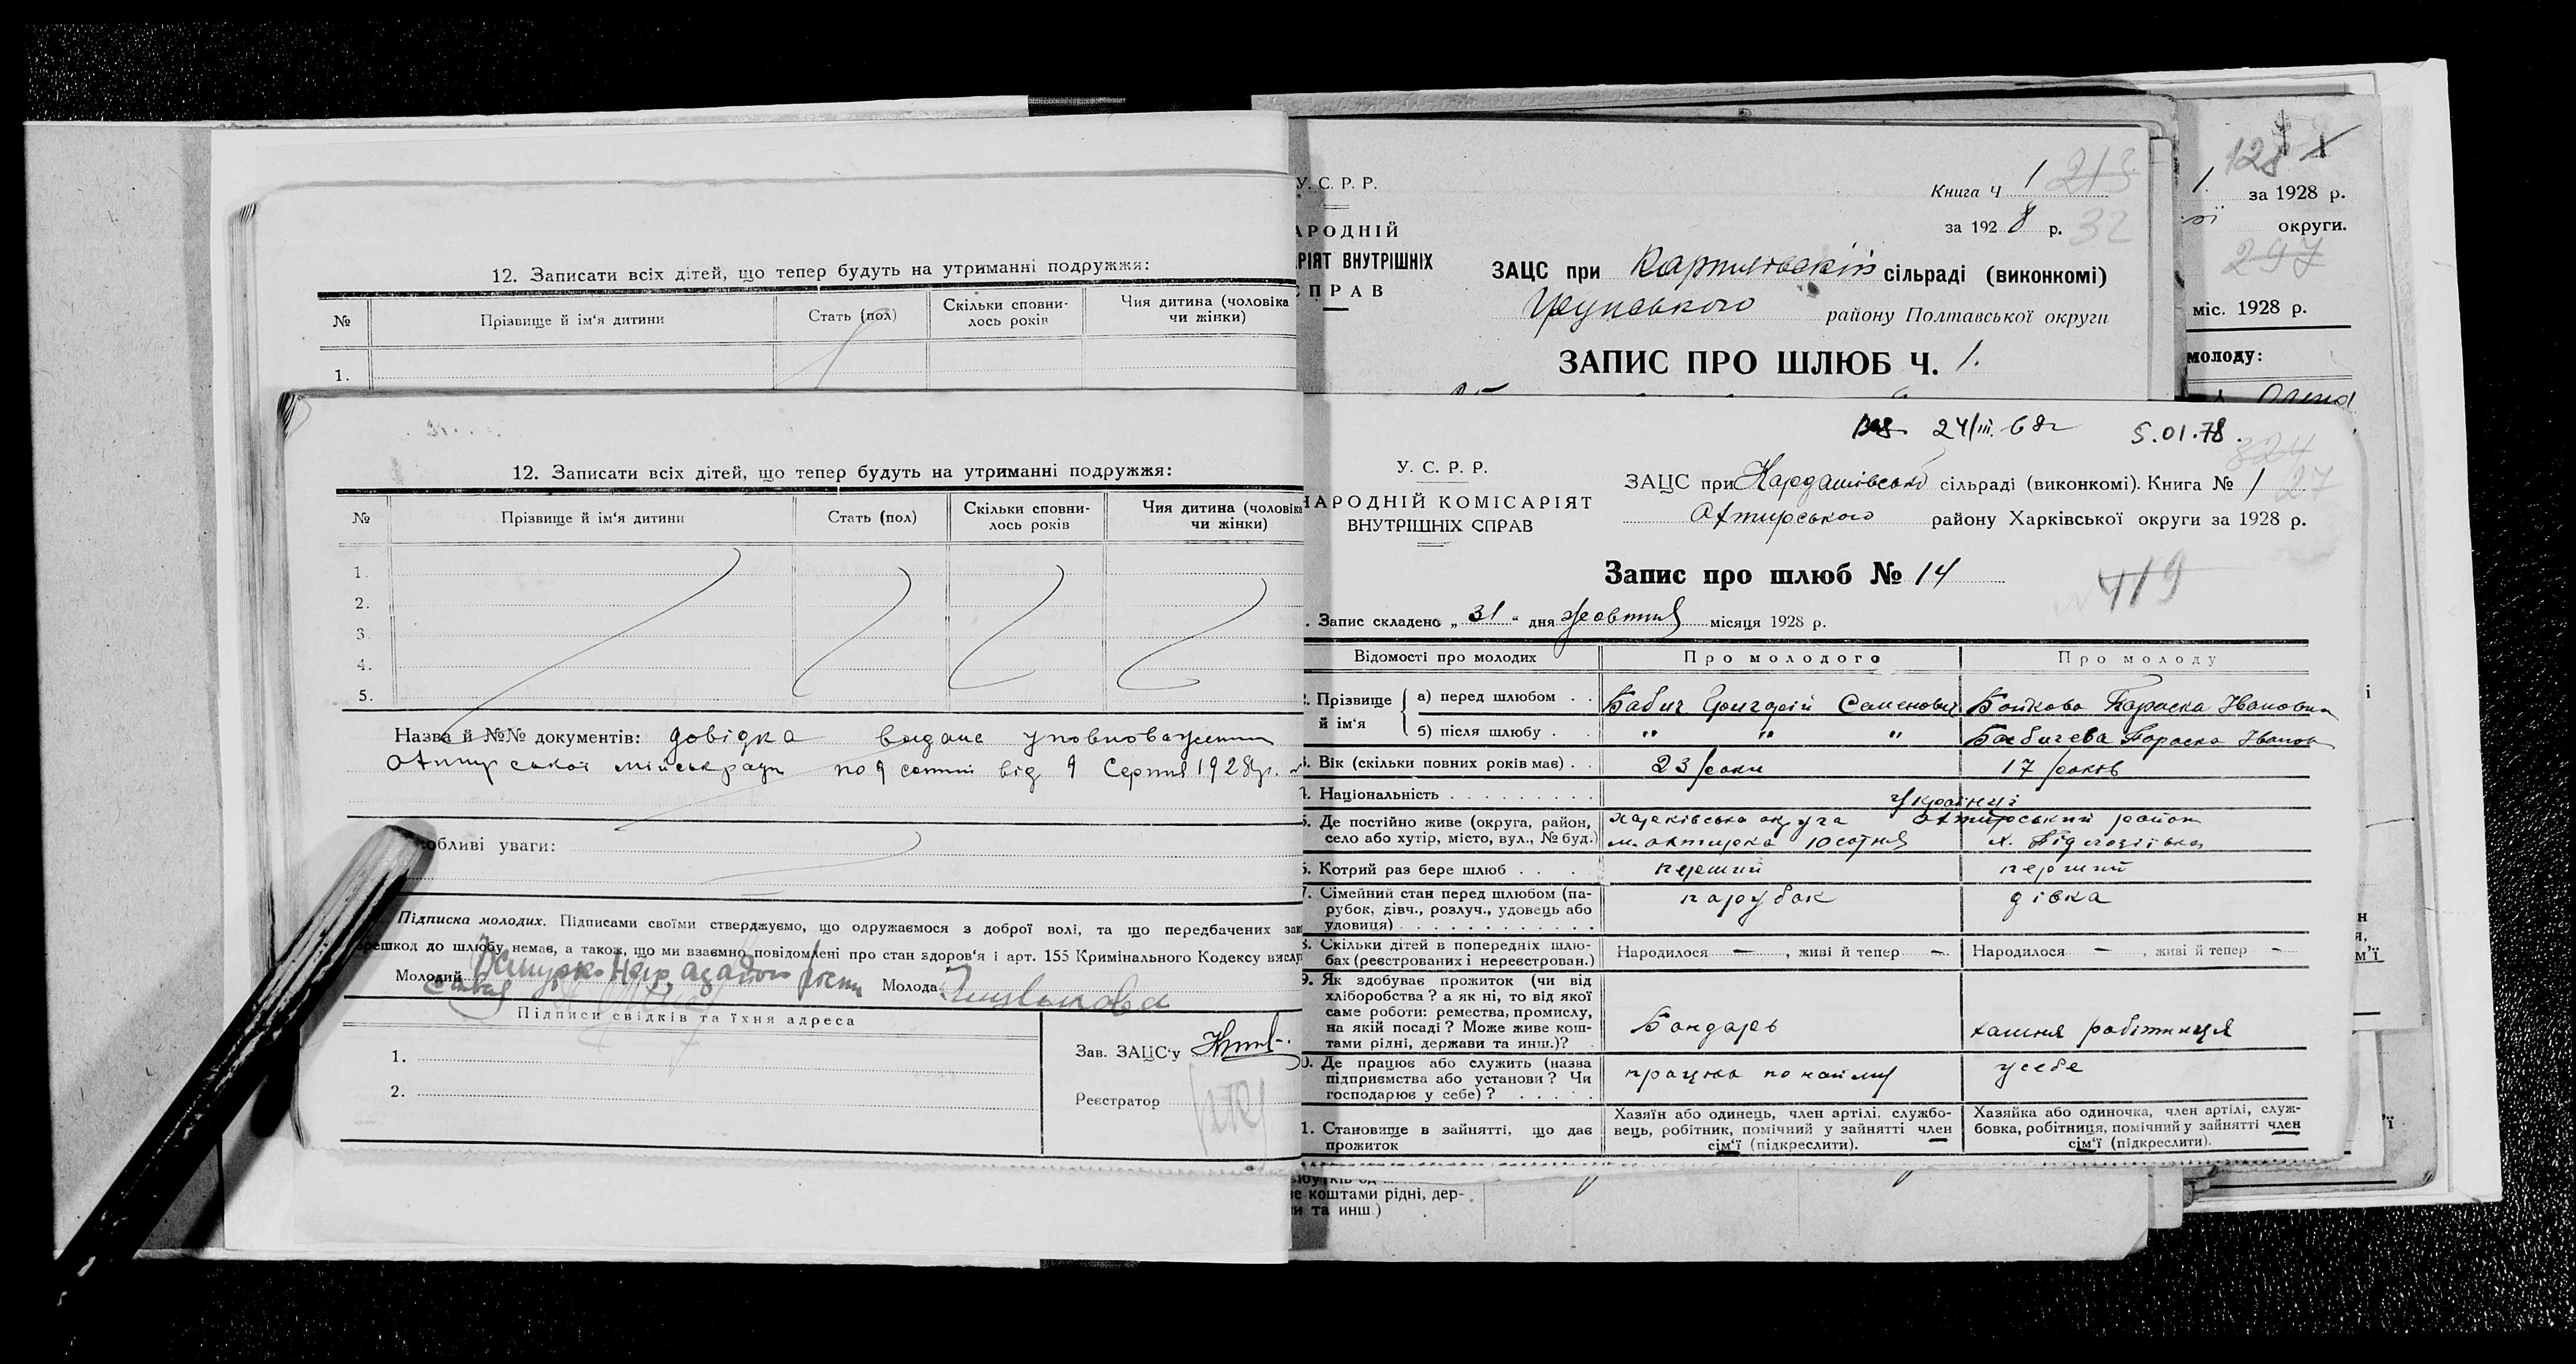 12. Записати всіх дітей, що тепер будуть на утриманні подружжя:
№ Прізвище й ім'я дитини Стать (пол) Скільки сповни- Чия дитина (чоловіка
лось років чи жінки)
1.
12. Записати всіх дітей, що тепер будуть на утриманні подружжя:
№ Прізвище й ім'я дитини Стать (пол) Скільки сповни- Чия дитина (чоловіка
лось років чи жінки)
1.
2.
3.
4.
5.
Назва й №№ документів: довідка видана уповноваженим
від 9 Серпня 1928 р.
обливі уваги:
Підписка молодих. Підписами своїми стверджуємо, що одружаємося з доброї волі, та що передбачених зак
решкод до шлюбу немає, а також, що ми взаємно повідомлені про стан здоров'я і арт. 155 Кримінального Кодексу вислу
Молодий Молода
Підписи свідків та їхня адреса
1.
2.
Зав. ЗАЦС'у
Реєстратор
У. С. Р. Р.
АРОДНІЙ
РІЯТ ВНУТРІШНІХ
ПРАВ
Книга ч 1 213
за 1928 р. 32
ЗАЦС при сільраді (виконкомі)
району Полтавської округи
ЗАПИС ПРО ШЛЮБ Ч. 1.
128
1. за 1928 р.
округи.
297
міс. 1928 р.
молоду:
Олена
24/III. 68г 5.01.78.
324
27
У. С. Р. Р.
НАРОДНІЙ КОМІСАРІЯТ
ВНУТРІШНІХ СПРАВ
ЗАЦС при Кардашівській сільраді (виконкомі). Книга № 1
Охтирського району Харківської округи за 1928 р.
Запис про шлюб № 14
419
. Запис складено „ 31 " дня жовтня місяця 1928 р.
Відомості про молодих Про молодого Про молоду
2. Прізвище й ім'я а) перед шлюбом . . Бабич Григорій Семенович Бойкова Параска Івановна
б) після шлюбу . " " " Бабичева Параска Іванов
3. Вік (скільки повних років має) . . 23 роки 17 років
4. Національність . . . Українці
5. Де постійно живе (округа, район, Харківська округа Охтирський район
село або хутір, місто, вул., № буд.) м. Охтирка 10 сотня х.
6. Котрий раз бере шлюб . . . перший перший
7. Сімейний стан перед шлюбом (па- парубок дівка
рубок, дівч., розлуч., удовець або
удовиця) . . .
8. Скільки дітей в попередніх шлю- Народилося — , живі й тепер — Народилося — , живі й тепер —
бах (реєстрованих і нереєстрован.)
9. Як здобуває прожиток (чи від
хліборобства? а як ні, то від якої
саме роботи: ремества, промислу,
на якій посаді? Може живе кош- Бондарь хатня робітниця
тами рідні, держави та инш.)?
0. Де працює або служить (назва працює по найму у себе
підприємства або установи? Чи
господарює у себе)? . . .
1. Становище в зайнятті, що дає
прожиток
Хазяїн або одинець, член артілі, службо-
вець, робітник, помічний у зайнятті член
сім'ї (підкреслити).
Хазяйка або одиночка, член артілі, служ-
бовка, робітниця, помічний у зайнятті член
сім'ї (підкреслити).
е коштами рідні, дер-
и та инш.)